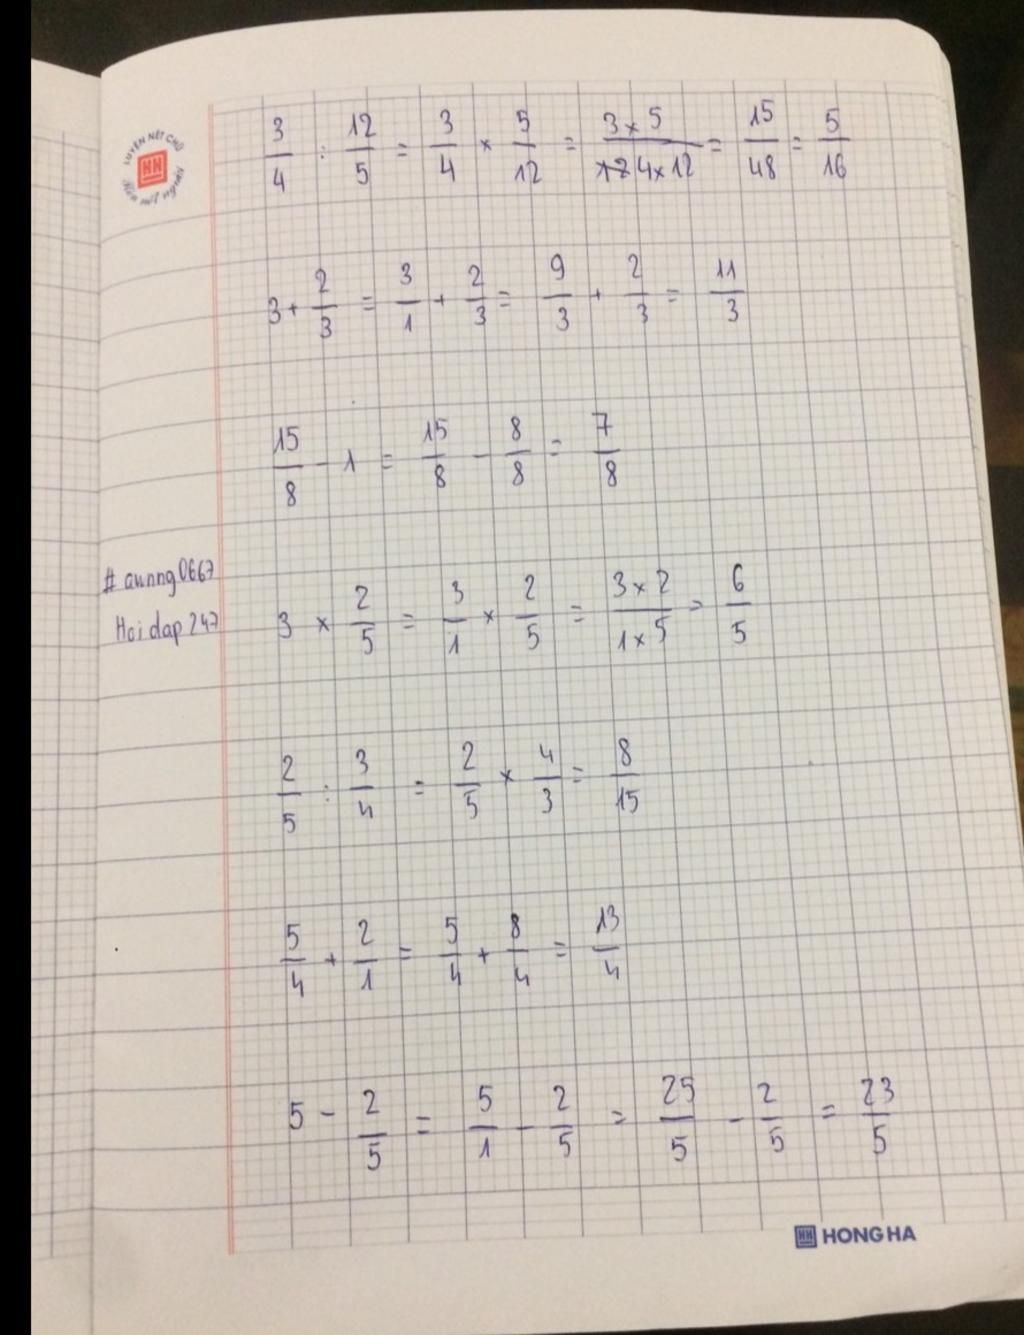 LUYỆN NÉT CHỮ
Rèn nết người
3/4 : 12/5 = 3/4 × 5/12 = 3×5/4×12 = 15/48 = 5/16
3 + 2/3 = 3/1 + 2/3 = 9/3 + 2/3 = 11/3
15/8 - 1 = 15/8 - 8/8 = 7/8
# aunng0667
Hoidap247
3 × 2/5 = 3/1 × 2/5 = 3×2/1×5 = 6/5
2/5 : 3/4 = 2/5 × 4/3 = 8/15
5/4 + 2/1 = 5/4 + 8/4 = 13/4
5 - 2/5 = 5/1 - 2/5 = 25/5 - 2/5 = 23/5
HONG HA